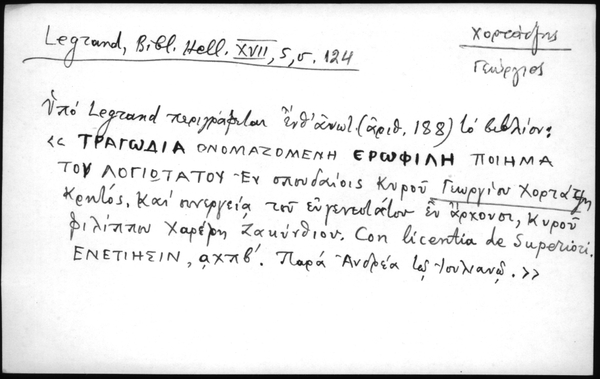 Legrand, Bibl. Hell. XVII, 5, σ. 124
Χορτάτζης
Γεώργιος
Ὑπό Legrand περιγράφεται ἔνθ' ἀνωτ. (ἀριθ. 188) τό βιβλίον:
«ΤΡΑΓΩΔΙΑ ΟΝΟΜΑΖΟΜΕΝΗ ΕΡΩΦΙΛΗ ΠΟΙΗΜΑ
ΤΟΥ ΛΟΓΙΩΤΑΤΟΥ Ἐν σπουδαίοις Κυροῦ Γεωργίου Χορτάτζη
Κρητός. Καί συνεργεία τοῦ εὐγενεστάτου ἐν ἄρχουσι, Κυροῦ
Φιλίππου Χαρέρη Ζακυνθίου. Con licentia de Superiori.
ΕΝΕΤΙΗΣΙΝ, ͵αχπβ'. Παρά Ἀνδρέα τῷ Ἰουλιανῷ.»